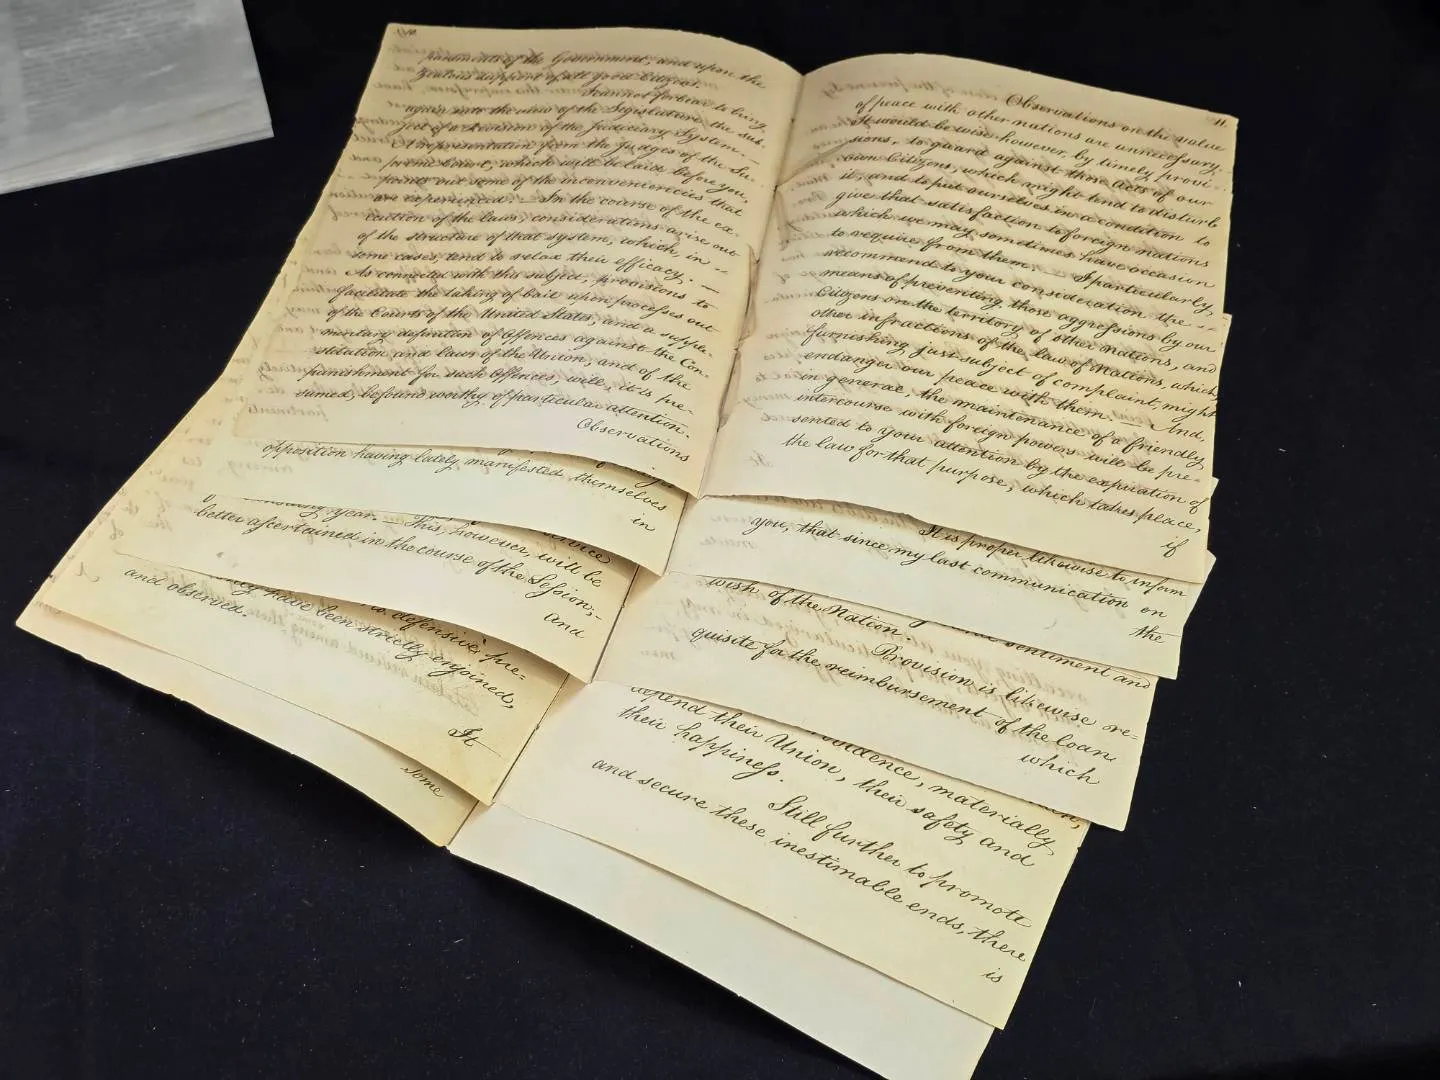 10.
partments of the Government, and upon the
Zealous support of all good Citizens.
I cannot forbear to bring
again into the view of the Legislature the sub-
ject of a Revision of the Judiciary System. —
A representation from the Judges of the Su-
preme Court, which will be laid before you,
points out some of the inconveniencies that
are experienced. — In the course of the ex-
ecution of the laws, considerations arise out
of the structure of that system, which, in --
some cases, tend to relax their efficacy. —
As connected with this subject, provisions to
facilitate the taking of bail upon processes out
of the Courts of the United States, and a supple-
mentary definition of Offences against the Con-
stitution and laws of the Union, and of the
punishment for such Offences, will, it is pre-
sumed, be found worthy of particular attention.
Observations
opposition having lately manifested themselves
in
year. This, however, will be
better ascertained in the course of the Session,-
and
defensive, pre=
have been strictly enjoined,
and observed.
It
some
11.
Observations on the value
of peace with other nations are unnecessary.
It would be wise however, by timely provi-
sions, to guard against those acts of our
own Citizens, which might tend to disturb
it, and to put ourselves in a condition to
give that satisfaction to foreign nations
which we may sometimes have occasion
to require from them. I particularly
recommend to your consideration the --
means of preventing those aggressions by our
Citizens on the territory of other Nations, and
other infractions of the law of Nations, which,
furnishing just subject of complaint, might
endanger our peace with them. — And,
in general, the maintenance of a friendly
intercourse with foreign powers will be pre-
sented to your attention by the expiration of
the law for that purpose, which takes place,
if
It is proper likewise to inform
you, that since my last communication on
the
sentiment and
wish of the Nation.
Provision is likewise re=
quisite for the reimbursement of the loan
which
materially
depend their Union, their safety and
their happiness.
Still further to promote
and secure these inestimable ends, there
is